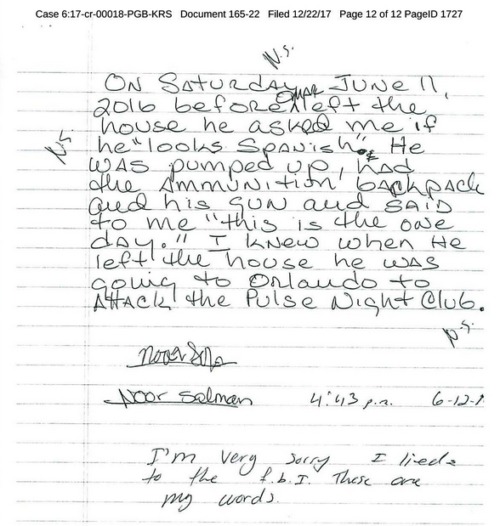 Case 6:17-cr-00018-PGB-KRS Document 165-22 Filed 12/22/17 Page 12 of 12 PageID 1727
N.S.
ON SATURDAY JUNE 11,
2016 before OMAR left the
house he asked me if
he "looks Spanish". He
N.S.
was pumped up, had
the Ammunition backpack
and his gun and SAID
to me "this is the one
day." I knew when He
left the house he was
going to Orlando to
Attack the Pulse Night Club.
N.S.
Noor Salman 4:43 p.m. 6-12-1
I'm very sorry I lied
to the f.b.I. These are
my words.